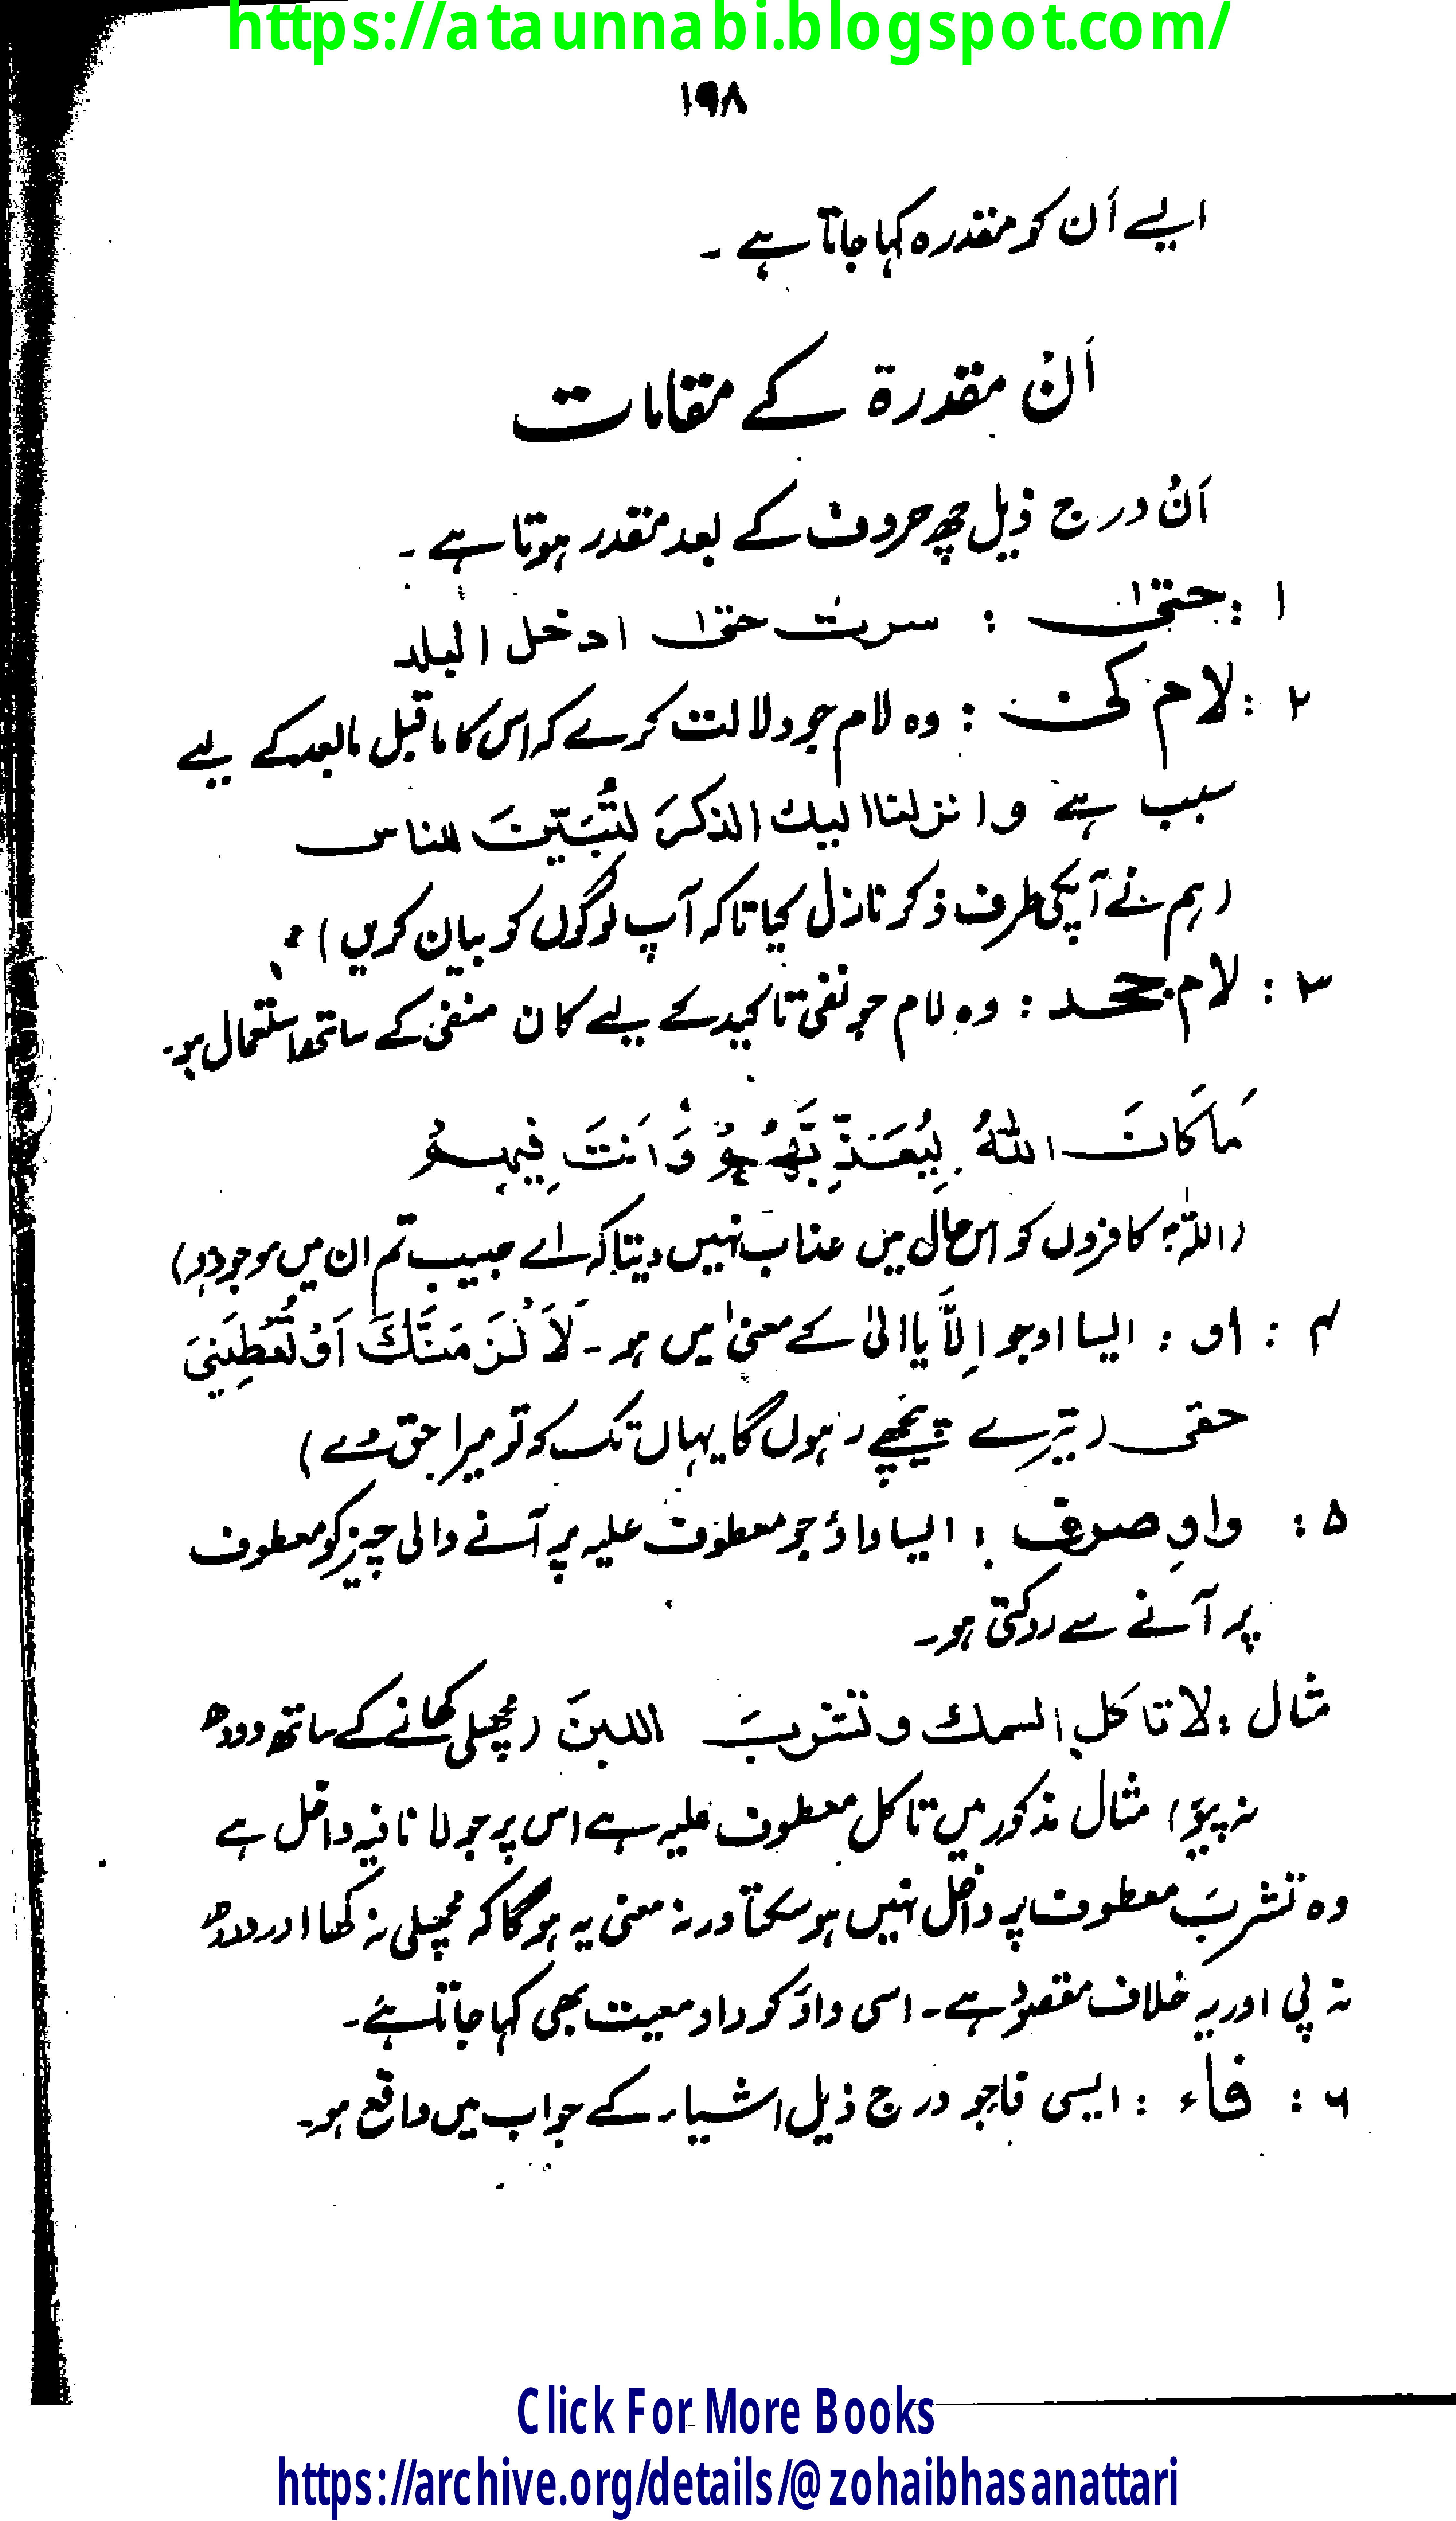 https://ataunnabi.blogspot.com/
۱۹۸
ایسے اَن کو مقدرہ کہا جاتا ہے ۔
اَنْ مقدرة کے مقامات
اَنْ درج ذیل چھ حروف کے بعد مقدر ہوتا ہے ۔
۱ : حتیٰ : سرت حتیٰ ادخل البلد
۲ : لام کی : وہ لام جو دلالت کرے کہ اس کا ماقبل مابعد کے لیے
سبب ہے وانزلنا الیك الذکرَ لتُبَیّنَ للناس
(ہم نے آپکی طرف ذکر نازل کیا تاکہ آپ لوگوں کو بیان کریں)
۳ : لام جحد : وہ لام جو نفی تاکید کے لیے کان منفی کے ساتھ استعمال ہو۔
مَا كَانَ اللّٰهُ لِيُعَذِّبَهُمْ وَاَنْتَ فِيهِمْ
(اللہ کافروں کو اس حال میں عذاب نہیں دیتا کہ اے حبیب تم ان میں موجود ہو)
۴ : او : ایسا او جو اِلَّا یا الیٰ کے معنیٰ میں ہو ۔ لَاَلْزَمَنَّكَ اَوْ تُعْطِيَنِيَ
حقی (تیرے پیچھے رہوں گا یہاں تک کہ تو میرا حق دے)
۵ : واوِ صرف : ایسا واؤ جو معطوف علیہ پر آنے والی چیز کو معطوف
پر آنے سے روکتی ہو۔
مثال : لا تاکلِ السمك و تشربَ اللبنَ (مچھلی کھانے کے ساتھ دودھ
نہ پیؤ) مثال مذکور میں تاکل معطوف علیہ ہے اس پر جو لا نافیہ داخل ہے
وہ تشربَ معطوف پر داخل نہیں ہو سکتا ورنہ معنی یہ ہوگا کہ مچھلی نہ کھا اور دودھ
نہ پی اور یہ خلاف مقصود ہے ۔ اسی واؤ کو واو معیت بھی کہا جاتا ہے۔
۶ : فاء : ایسی فا جو درج ذیل اشیاء کے جواب میں واقع ہو۔
Click For More Books
https://archive.org/details/@zohaibhasanattari